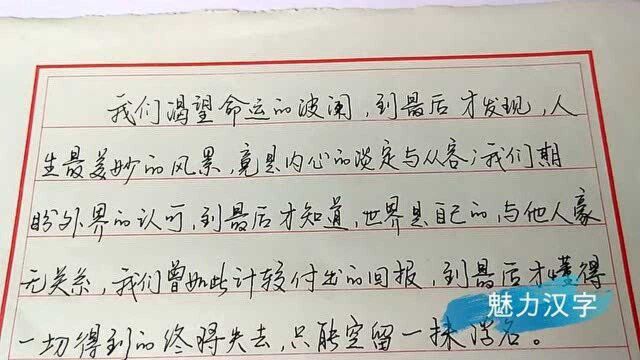 我们渴望命运的波阑,到最后才发现,人
生最美妙的风景,竟是内心的淡定与从容;我们期
盼外界的认可,到最后才知道,世界是自己的,与他人豪
无关系,我们曾如此计较付出的回报,到最后才懂得
一切得到的终将失去,只能空留一抹浮名。
魅力汉字